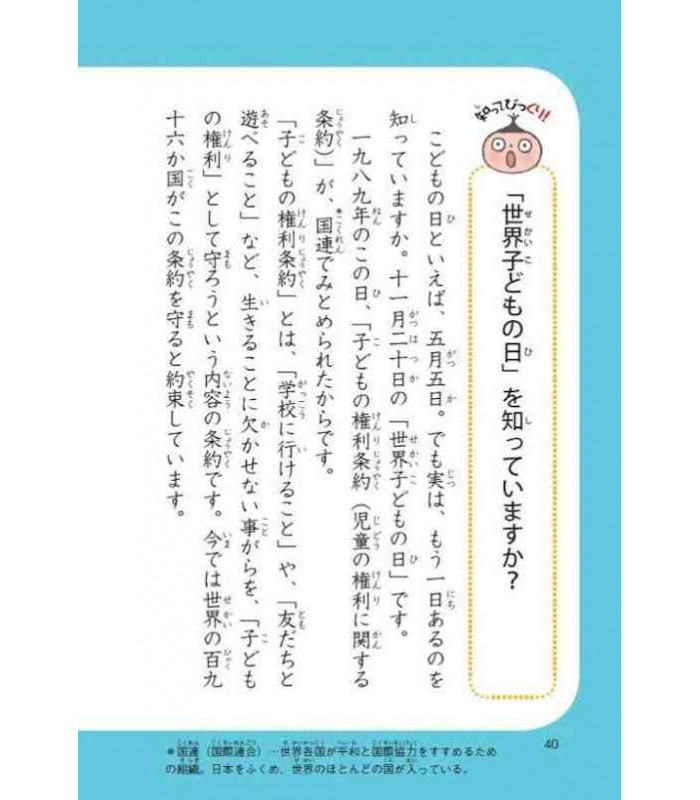 知ってびっくり!
「世界子どもの日」を知っていますか?
こどもの日といえば、五月五日。でも実は、もう一日あるのを
知っていますか。十一月二十日の「世界子どもの日」です。
一九八九年のこの日、「子どもの権利条約(児童の権利に関する
条約)」が、*国連でみとめられたからです。
「子どもの権利条約」とは、「学校に行けること」や、「友だちと
遊べること」など、生きることに欠かせない事がらを、「子ども
の権利」として守ろうという内容の条約です。今では世界の百九
十六か国がこの条約を守ると約束しています。
*国連(国際連合)…世界各国が平和と国際協力をすすめるため
の組織。日本をふくめ、世界のほとんどの国が入っている。
40